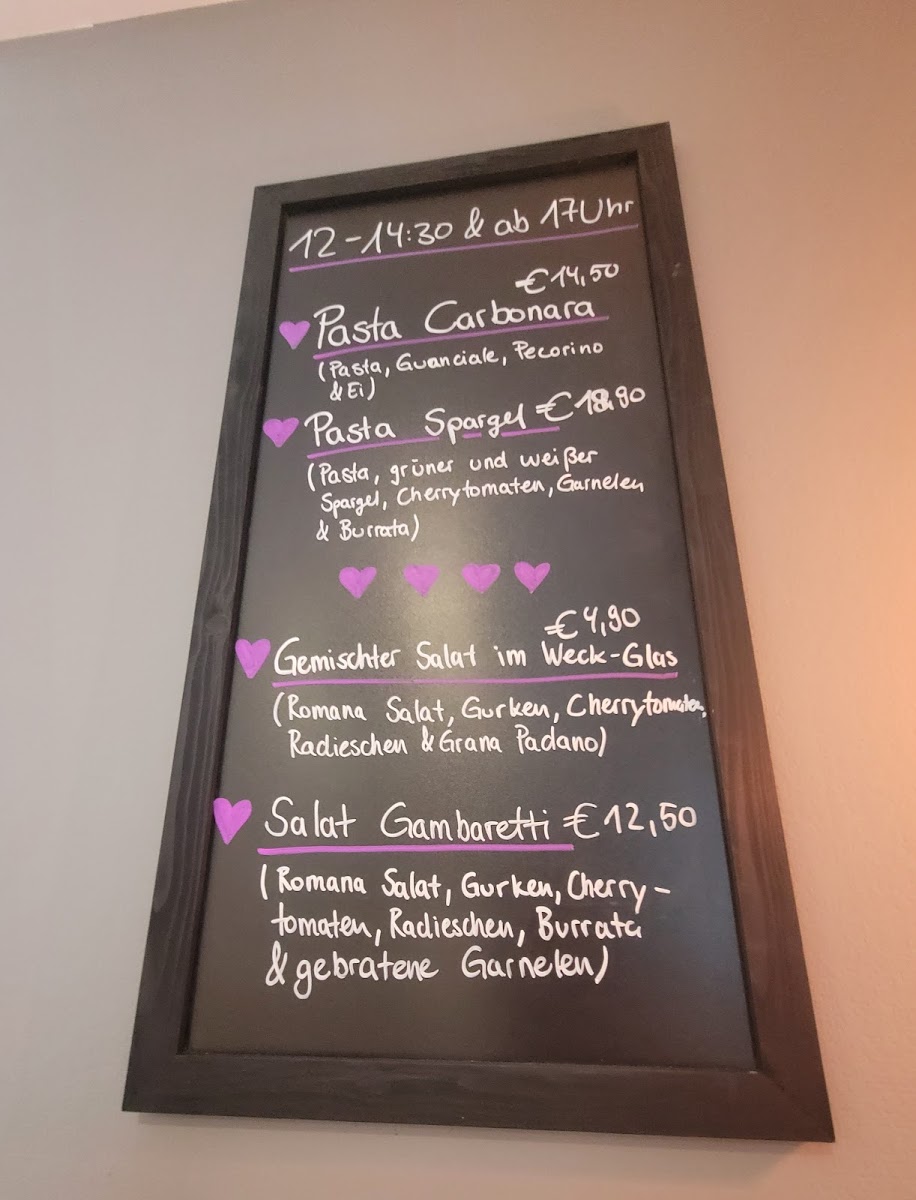 12-14:30 & ab 17Uhr
€14,50
Pasta Carbonara
(Pasta, Guanciale, Pecorino
& Ei)
Pasta Spargel €18,90
(Pasta, grüner und weißer
Spargel, Cherrytomaten, Garnelen
& Burrata)
€4,90
Gemischter Salat im Weck-Glas
(Romana Salat, Gurken, Cherrytomaten,
Radieschen & Grana Padano)
Salat Gambaretti €12,50
(Romana Salat, Gurken, Cherry-
tomaten, Radieschen, Burrata
& gebratene Garnelen)